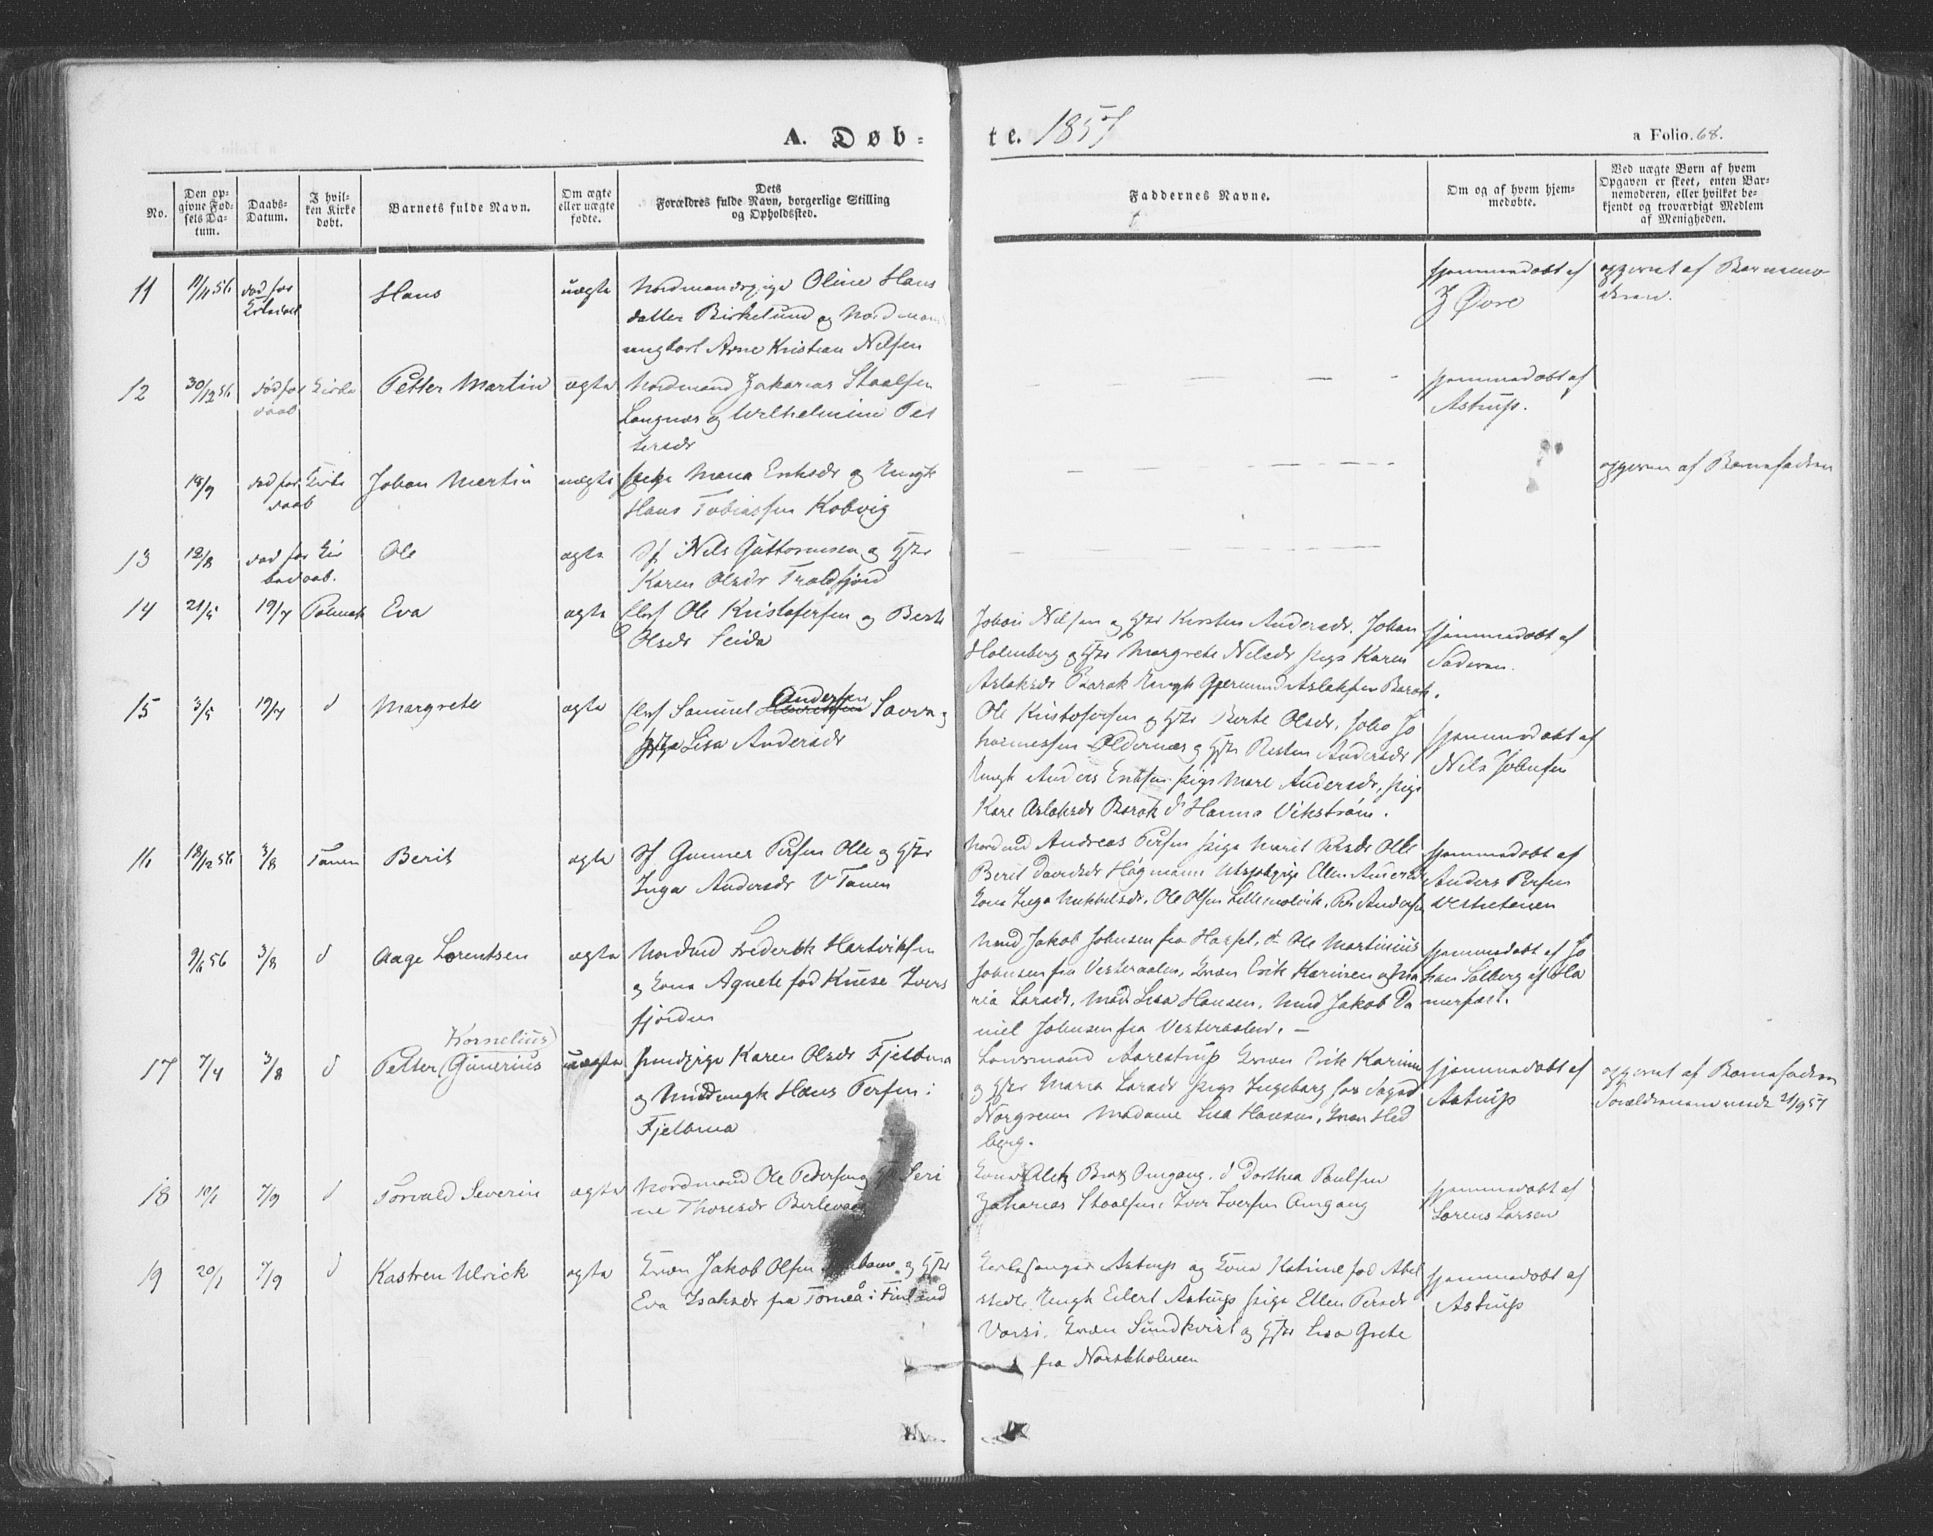 A. Døb-
te. 1857
a Folio. 68.
No.
Den op-
givne Fød-
sels Da-
tum.
Daabs-
Datum.
I hvil-
ken Kirke
døbt.
Barnets fulde Navn.
Om ægte
eller uægte
fødte.
Dets
Forældres fulde Navn, borgerlige Stilling
og Opholdssted.
Faddernes Navne.
Om og af hvem hjem-
medøbte.
Ved uægte Børn af hvem
Opgaven er skeet, enten Bar-
nemoderen, eller hvilket be-
kjendt og troværdigt Medlem
af Menigheden.
11
død før
Hans
uægte
Oline Hans
datter Birkelund og Nordmand
ungkarl Arne Kristian Nilsen
hjemmedøbt af
J Øvre
opgivet af Barnemo
deren.
12 30/12 56
død før
daab
Kirke
Petter Martin
ægte
Nordmand Zakarias Staalsen
Langnæs og Wilhelmine Pet
tersdr
hjemmedøbt af
Astrup.
18/9
død før
daab
Johan Martin
uægte
Pige Maria Eriksdr og Ungk
Hans Tobiassen Kobvig
opgiven af Barnefaderen
13 18/8
død før
Ole
ægte
Nils Guttormsen og Hstr
Karen Olsdr Troldfjord
14 21/5 19/7 Polmak
Eva
ægte
Ole Kristofersen og Berit
Olsdr Seida
Johan Nilsen og Hstr Kirsten Andersdr. Johan
Holmberg og Hstr Margrete Nilsdr Pige Karen
Aslaksdr Barok Ungk Gjermund Aslaksen Barok.
hjemmedøbt af
Faderen.
15 3/5 19/7 d
Margrete
ægte
Samuel Andersen
Savva og
Lisa Andersdr
Ole Kristofersen og Hstr Berte Olsdr, John Jo
hannessen Oldernæs og Hstr Kirsten Andersdr
Ungk Anders Eriksen Pige Mare Andersdr, Pige
Kare Aslaksdr Barok d Hanna Vikstrøm.
hjemmedøbt af
Nils Johnsen
16 18/12 56 3/8 Tanen
Berit
ægte
Gunner Persen Olle og Hstr
Inga Andersdr V Tanen
Andreas Persen Pige Marit Persdr Olle
Berit Davidsdr Høgmann
Ellen Andersdr
Kona Inga Mikkelsdr. Ole Olsen Lillemolvik. Per Andersen
hjemmedøbt af
Anders Persen
Vestretanen
9/6 56 3/8 d
Aage Lorentsen
ægte
Nordmd Frederik Hartviksen
og Kona Agnete fød Kruse Ivers
fjorden
Nmd Jakob Johnsen fra Hassel, d Ole Martinius
Johnsen fra Vesteraalen, Kvæn Erik Karinen og Ma
ria Larsdr, Mad. Lisa Hansen, Nmd Jakob Da
niel Johnsen fra Vesteraalen. —
hjemmedøbt af Jo
han Solberg af Ha
merfæst.
17 7/4 3/8 d
Kornelius)
Petter (Gunerius
uægte
Karen Olsdr Fjeldma
og Nmd ungk Hans Persen i
Fjeldma
Lensmand Aarestrup Kvæn Erik Karinen
og Hstr Maria Larsdr Pige Ingeborg
Norgreen Madame Lisa Hansen, Kvæn Hed
berg.
hjemmedøbt af
Astrup
opgivet af Barnefaderen
Forældrene
21/9 57
18 10/1 7/9 d
Torvald Severin
ægte
Nordmand Ole Pedersen og
Seri
ne Thoresdr Berlevaag
Kona Alet
Omgang. d Dorthea Paulsen
Zakarias Staalsen, Iver Iversen Omgang
hjemmedøbt af
Lorens Larsen
19 20/1 7/9 d
Kastren Ulrick
ægte
Kvæn Jakob Olsen
og Hstr
Eva Isaksdr fra Torneå i Finland
Kirkesanger Astrup og Kona Katrine fød Abel
stedt. Ungk Eilert Astrup Pige Ellen Persdr
Varsi. Kvæn Sundkvist og Hstr Lisa Grete
fra Norskholmen
hjemmedøbt af
Astrup